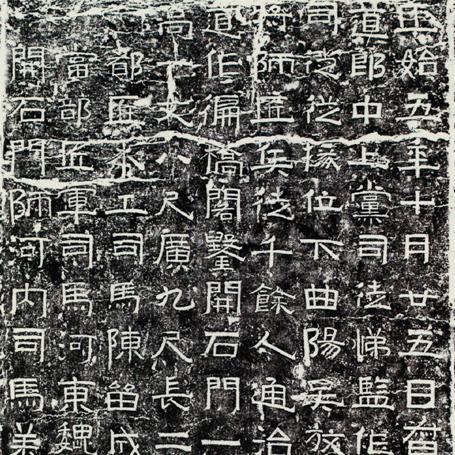 始五年十月廿五日督
道郎中上黨司徒悌監作
司徒從掾位下曲陽吳放
將師匠兵徒千餘人通治
道作偏橋閣鑿開石門一
高一丈八尺廣九尺長二
都匠木工司馬陳留成
當部匠軍司馬河東魏
開石門師河內司馬羌